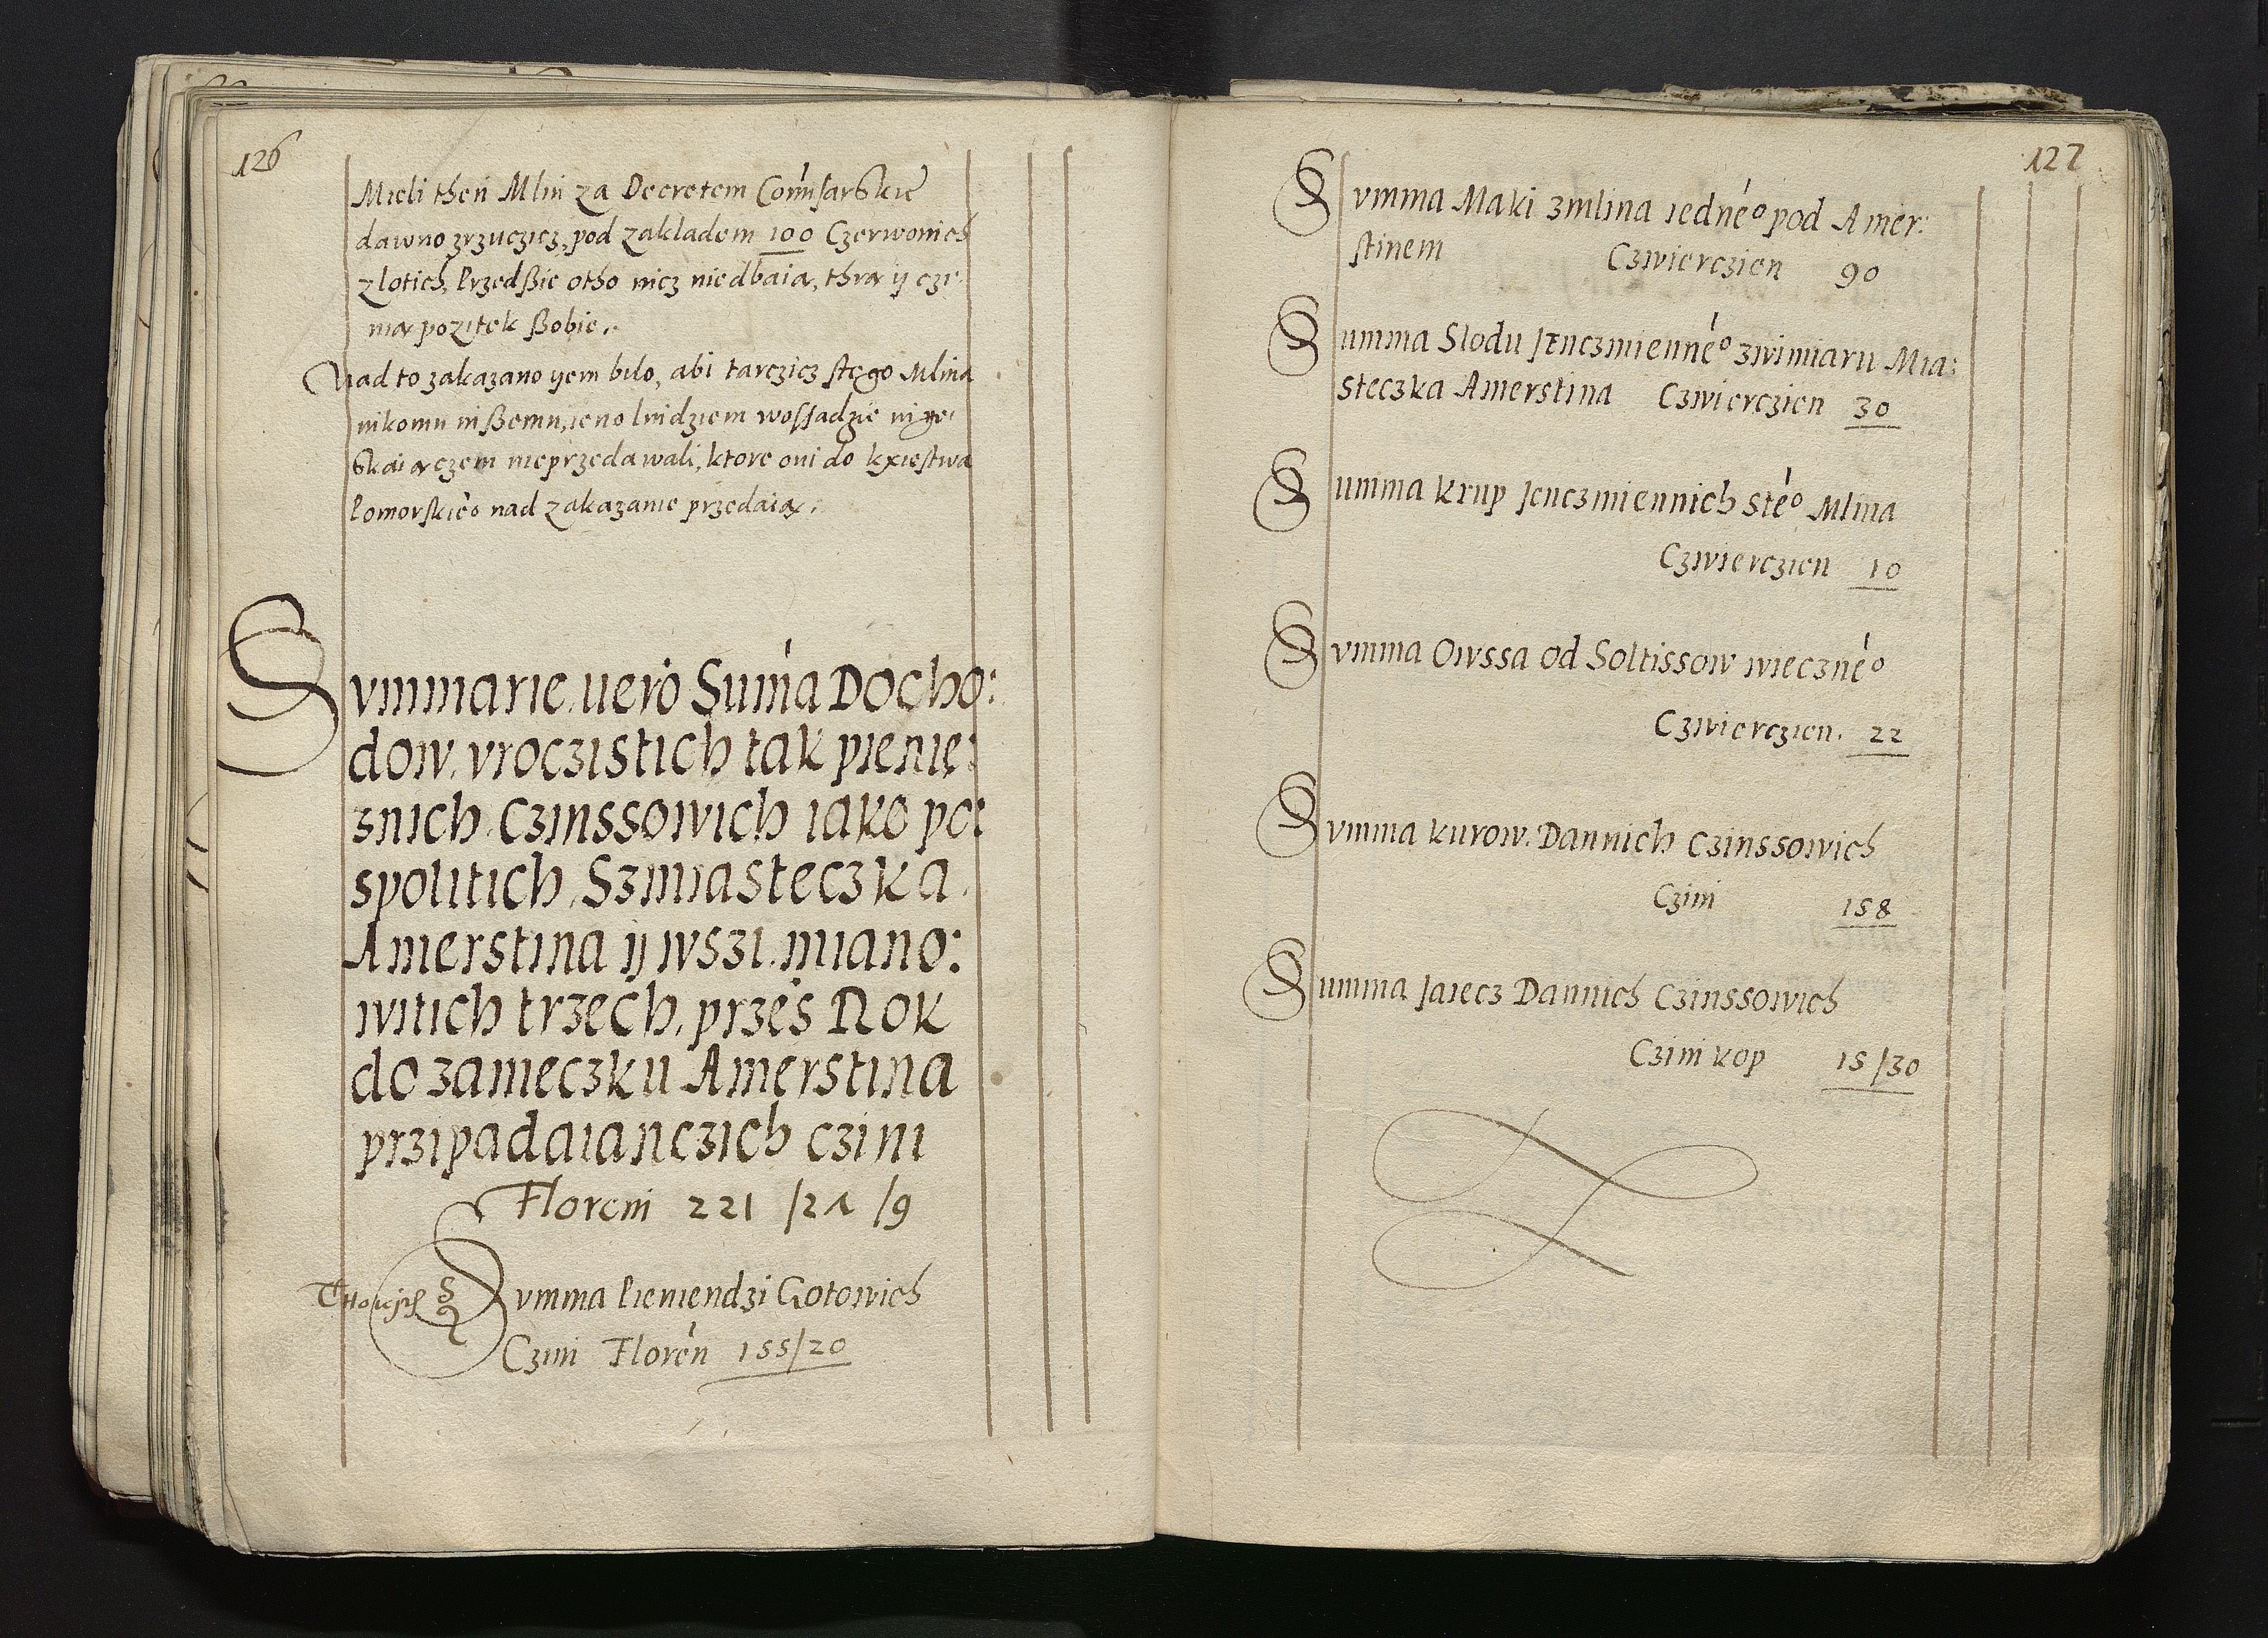 126
Mieli then Mlin za Decretem Com̃isarskie
dawno zrzuczicz, pod zakladem 100 Czerwonich
zlotich, Przedßie otho nicz niedbaią, thrą ij czi
nią pozitek ßobie.
Nad to zakazano yem bilo, abi tarczicz stego Mlina
nikomu inßemu, ieno ludziem wossadzie
nieprzedawali, ktore oni do kxiestwa
Pomorskie͛o nad zakazanie przedaią.
Svmmarie vero Sum̃a Docho:
dow vroczistich tak pienię:
znich Czinssowich iako po:
spolitich, Szmiasteczka
Amerstina ij wszi miano:
witich trzech, przes Rok
do zameczku Amerstina
przipadaianczich czini
Floreni 221 /21 /9
Svmma Pieniendzi Gotowich
Czini Floren 155/20
127
Svmma Maki zmlina iedne͛o pod Amer:
stinem Czwierczien 90
Summa Slodu Jęnczmienne͛o zwimiaru Mia:
steczka Amerstina Czwierczien 30
Summa krup Jenczmiennich ste͛o Mlina
Czwierczien 10
Svmma Owssa od Soltissow wieczne͛o
Czwierczien. 22
Svmma kurow. Dannich Czinssowich
Czini 158
Summa Jaiecz Dannich Czinssowich
Czini kop 15/30